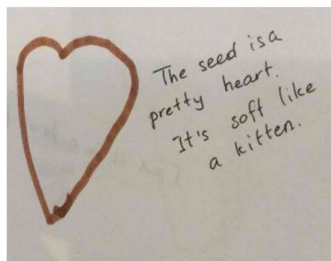 The seed is a
pretty heart.
It's soft like
a kitten.